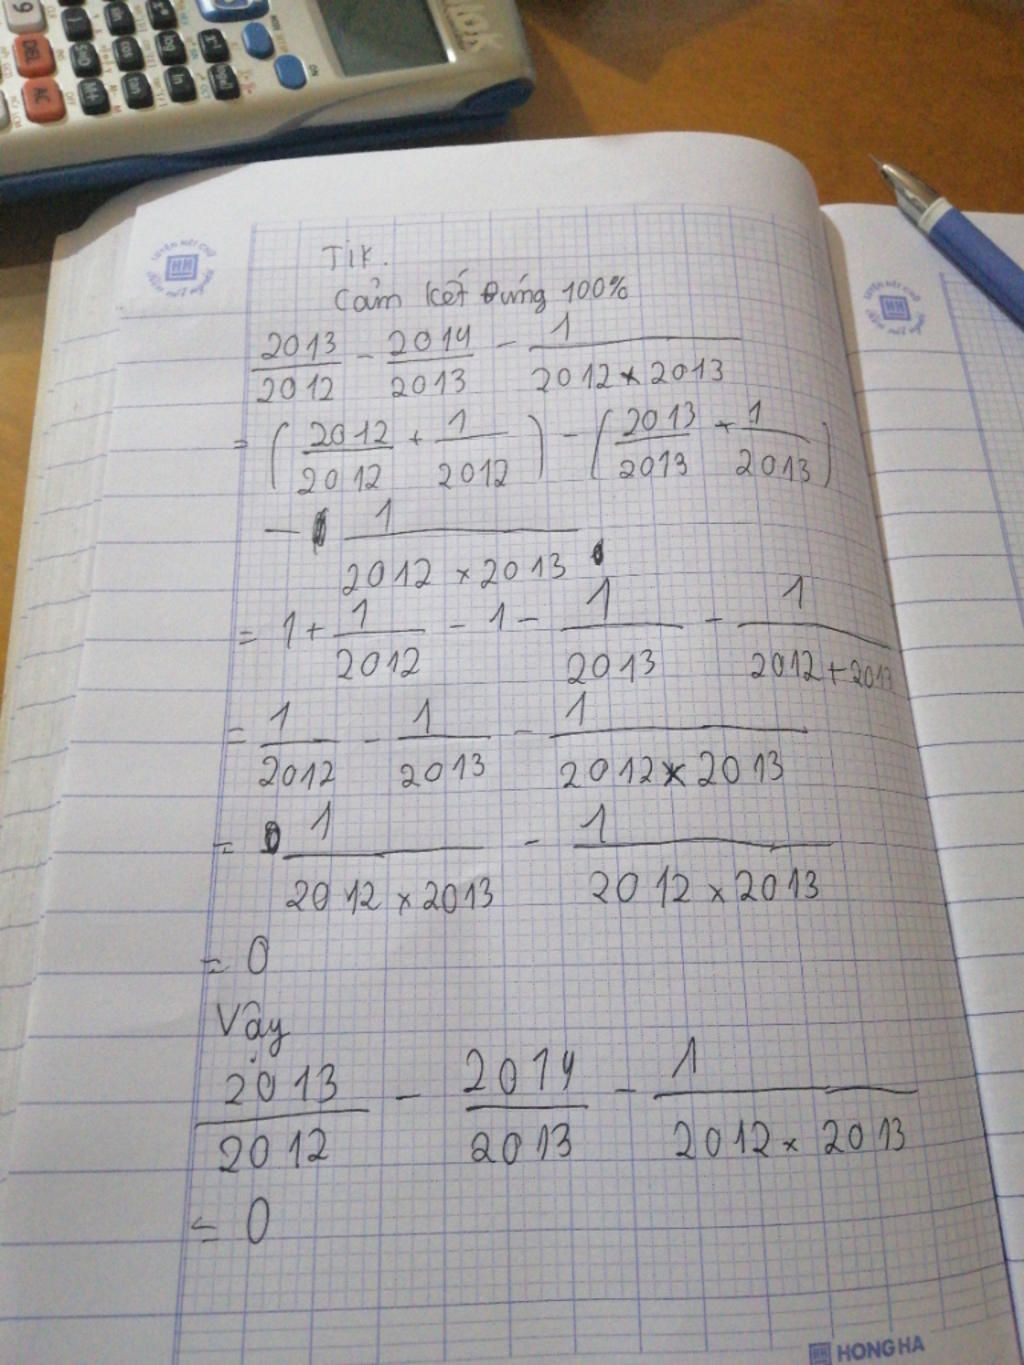 Tik.
Cảm kết đúng 100%
2013/2012 - 2014/2013 - 1/(2012 × 2013)
= (2012/2012 + 1/2012) - (2013/2013 + 1/2013)
- 1/(2012 × 2013)
= 1 + 1/2012 - 1 - 1/2013 - 1/(2012 + 2013)
= 1/2012 - 1/2013 - 1/(2012 × 2013)
= 1/(2012 × 2013) - 1/(2012 × 2013)
= 0
Vậy
2013/2012 - 2014/2013 - 1/(2012 × 2013)
= 0
HONG HA
DEL
AC
M+
sin
cos
tan
log
ln
ON